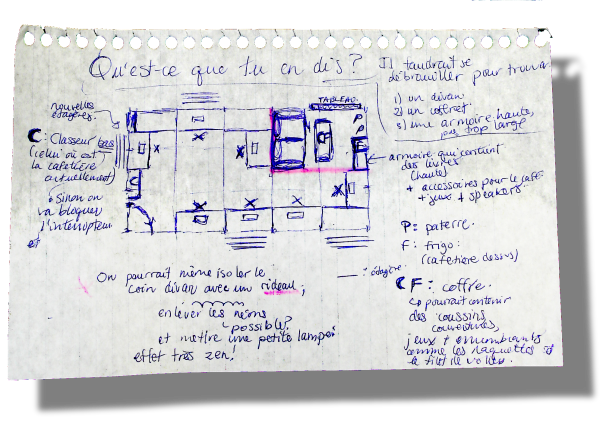 Qu'est-ce que tu en dis?
Il faudrait se
débrouiller pour trouver
1) un divan
2) un coffret
3) une armoire haute,
pas trop large
nouvelles
étagères.
C: Classeur bas
(celui où est
la cafetière
actuellement)
Sinon on
va bloquer
l'interrupteur
TABLEAU
P
P
F
armoire qui contient
des livres
(haute)
+ accessoires pour le café
+ jeux + speakers
P: paterre.
F: frigo:
(cafetière dessus)
___: étagère
CF: coffre.
↳ pourrait contenir
des coussins
couvertures,
jeux + encombrants
comme les raquettes et
le filet de volley.
On pourrait même isoler le
coin divan avec un rideau,
enlever les néons
possible?
et mettre une petite lampe:
effet très zen!